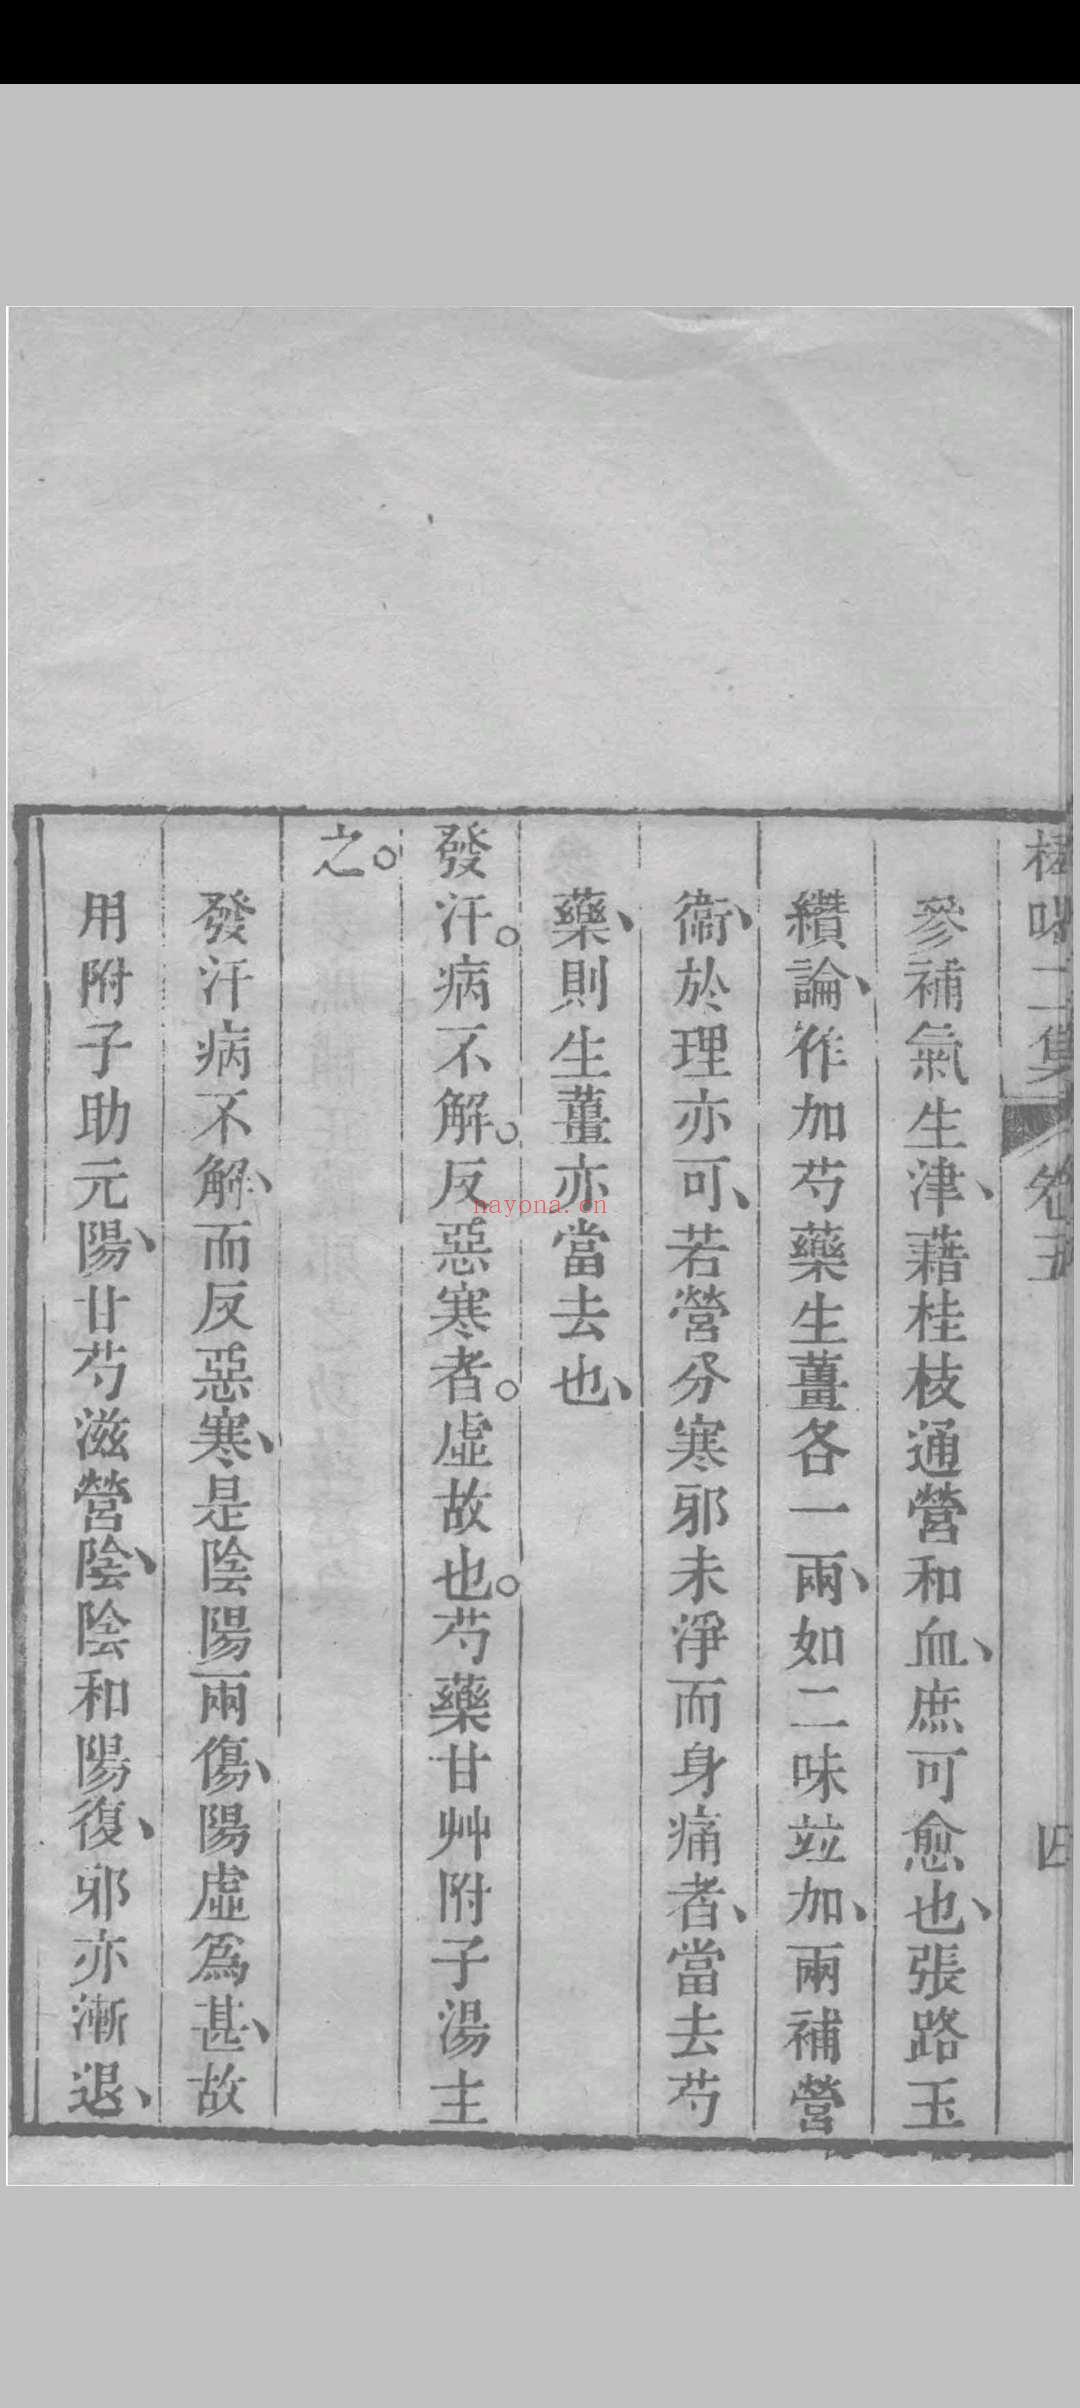 二集
卷五
四
參補氣生津、藉桂枝通營和血、庶可愈也、張路玉
纘論、作加芍藥生薑各一兩、如二味竝加、兩補營
衞、於理亦可、若營分寒邪未淨而身痛者、當去芍
藥、則生薑亦當去也、
發汗。病不解。反惡寒者。虛故也。芍藥甘艸附子湯主
之。
發汗病不解、而反惡寒、是陰陽兩傷、陽虛爲甚、故
用附子助元陽、甘芍滋營陰、陰和陽復、邪亦漸退、
nayona.cn